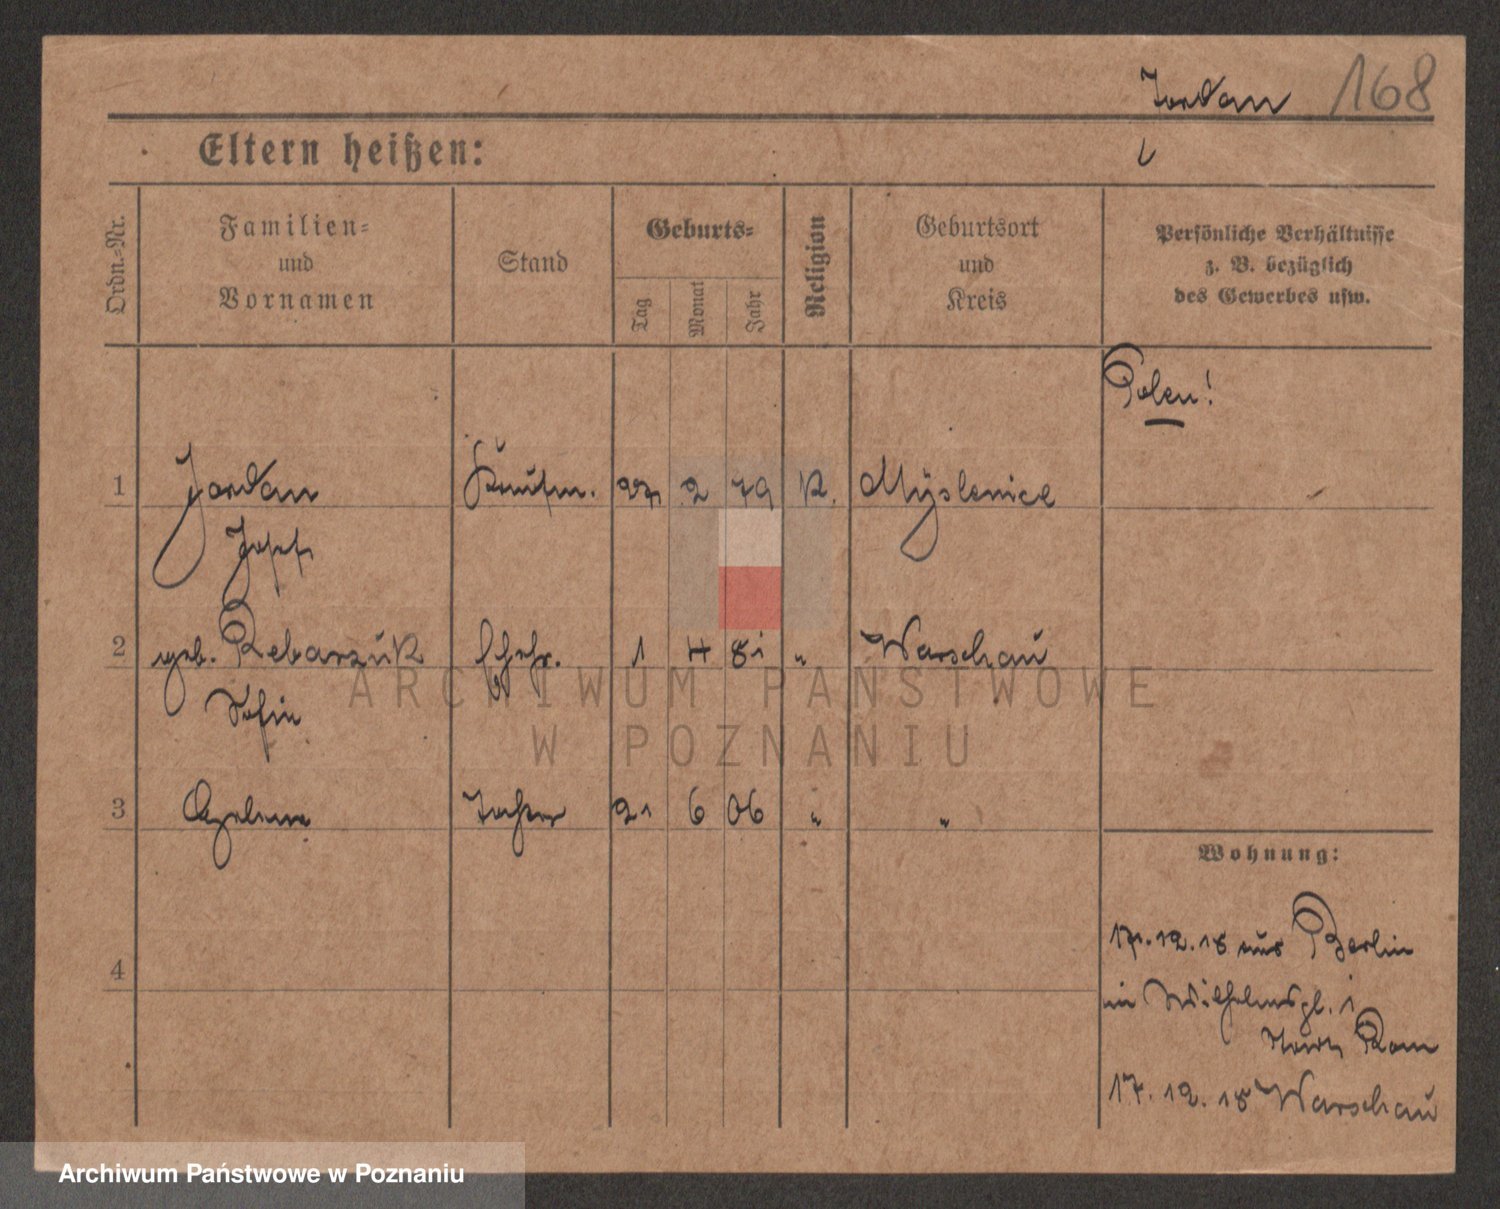 Jordan 168
Eltern heißen:
Ordn.-Nr.
Familien-
und
Vornamen
Stand
Geburts-
Tag
Monat
Jahr
Religion
Geburtsort
und
Kreis
Persönliche Verhältnisse
z. B. bezüglich
des Gewerbes usw.
Polen!
1 Jordan Kaufm. 27 2 79 K. Myslenice
Josef
2 geb. Rebarzuk Ehefr. 1 4 81 " Warschau
Sofie
ARCHIWUM PAŃSTWOWE
W POZNANIU
3 Tochter 21 6 06 " "
Wohnung:
17.12.18 aus Berlin
in Wilhelmspl. 1
Rom
4
17.12.18 Warschau
Archiwum Państwowe w Poznaniu